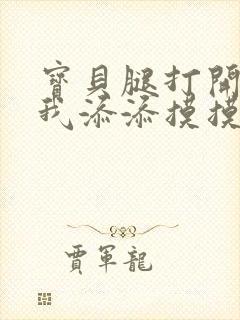 寳貝腿打開
我添添摸摸
賈軍龍